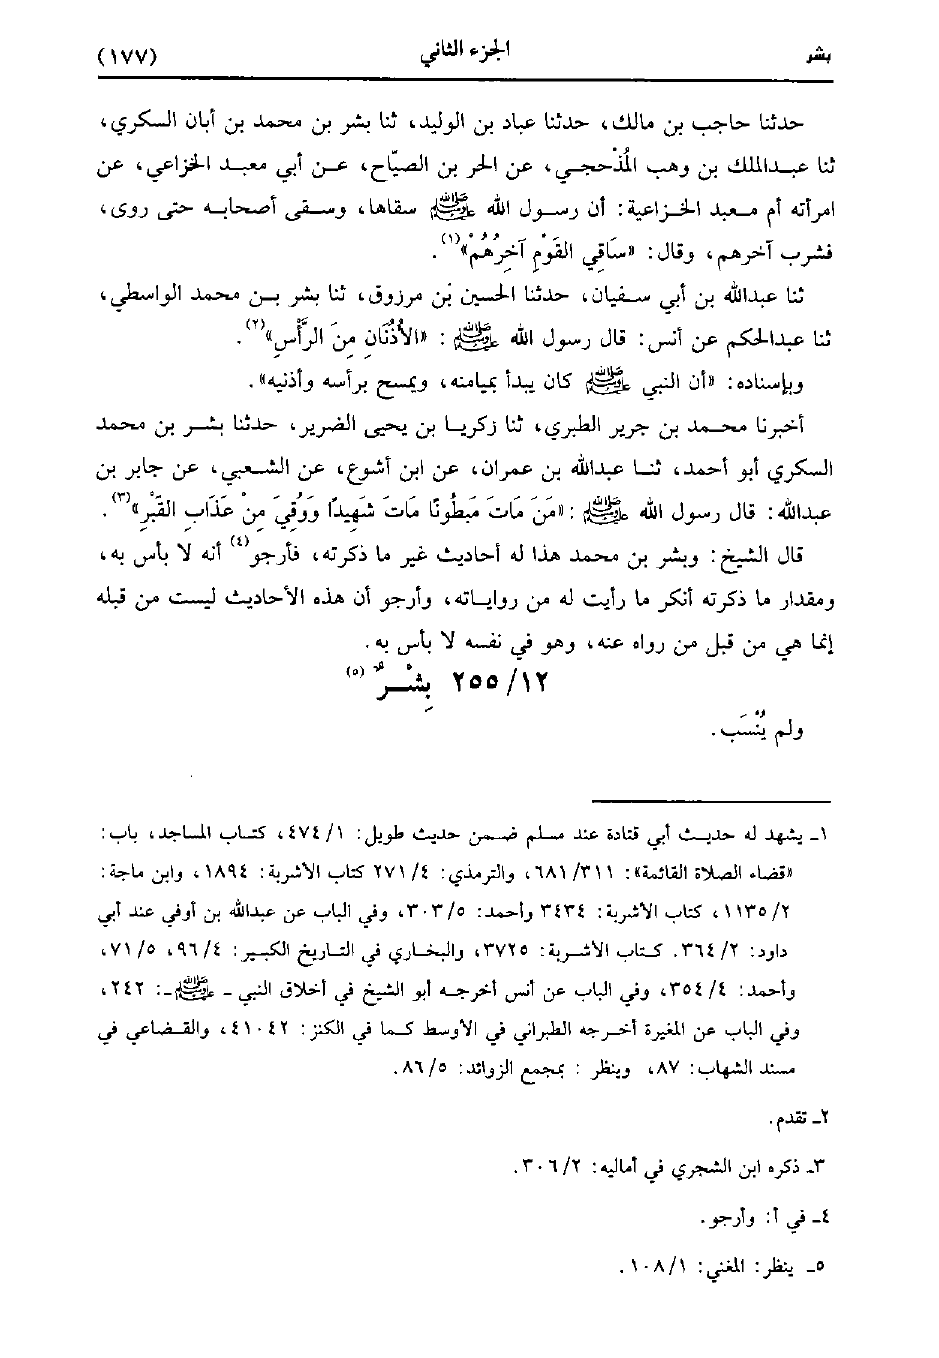 بشر الجزء الثاني (١٧٧)
حدثنا حاجب بن مالك، حدثنا عباد بن الوليد، ثنا بشر بن محمد بن أبان السكري،
ثنا عبدالملك بن وهب المُذْحجي، عن الحر بن الصيّاح، عن أبي معبد الخزاعي، عن
امرأته أم معبد الخزاعية: أن رسول الله ﷺ سقاها، وسقى أصحابه حتى روى،
فشرب آخرهم، وقال: «سَاقِي القَوْمِ آخِرُهُمْ»(١).
ثنا عبدالله بن أبي سفيان، حدثنا الحسين بْن مرزوق، ثنا بشر بن محمد الواسطي،
ثنا عبدالحكم عن أنس: قال رسول الله ﷺ: «الأُذُنَانِ مِنَ الرَّأْسِ»(٢).
وبإسناده: «أن النبي ﷺ كان يبدأ بميامنه، ويمسح برأسه وأذنيه».
أخبرنا محمد بن جرير الطبري، ثنا زكريا بن يحيى الضرير، حدثنا بشر بن محمد
السكري أبو أحمد، ثنا عبدالله بن عمران، عن ابن أشوع، عن الشعبي، عن جابر بن
عبدالله: قال رسول الله ﷺ: «مَنَ مَاتَ مَبطُونًا مَاتَ شَهِيدًا وَوُقِيَ مِنْ عَذَابِ القَبْرِ»(٣).
قال الشيخ: وبشر بن محمد هذا له أحاديث غير ما ذكرته، فأرجو(٤) أنه لا بأس به،
ومقدار ما ذكرته أنكر ما رأيت له من رواياته، وأرجو أن هذه الأحاديث ليست من قبله
إنما هي من قبل من رواه عنه، وهو في نفسه لا بأس به.
١٢/ ٢٥٥ بِشْرٌ(٥)
ولم يُنْسَب.
١ـ يشهد له حديث أبي قتادة عند مسلم ضمن حديث طويل: ١/ ٤٧٤، كتاب المساجد، باب:
«قضاء الصلاة القائمة»: ٣١١/ ٦٨١، والترمذي: ٤/ ٢٧١ كتاب الأشربة: ١٨٩٤، وابن ماجة:
٢/ ١١٣٥، كتاب الأشربة: ٣٤٣٤ وأحمد: ٥/ ٣٠٣، وفي الباب عن عبدالله بن أوفي عند أبي
داود: ٢/ ٣٦٤. كتاب الأشربة: ٣٧٢٥، والبخاري في التاريخ الكبير: ٤/ ٩٦، ٥/ ٧١،
وأحمد: ٤/ ٣٥٤، وفي الباب عن أنس أخرجه أبو الشيخ في أخلاق النبي ـ ﷺ ـ: ٢٤٢،
وفي الباب عن المغيرة أخرجه الطبراني في الأوسط كما في الكنز: ٤١٠٤٢، والقضاعي في
مسند الشهاب: ٨٧، وينظر: مجمع الزوائد: ٥/ ٨٦.
٢ـ تقدم.
٣ـ ذكره ابن الشجري في أماليه: ٢/ ٣٠٦.
٤ـ في أ: وأرجو.
٥ـ ينظر: المغني: ١/ ١٠٨.